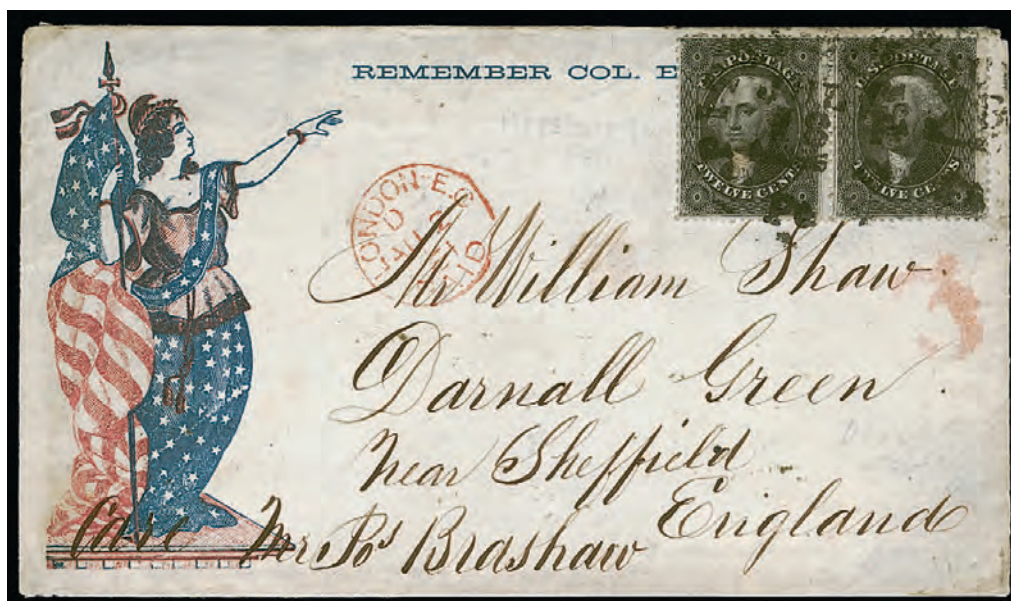 REMEMBER COL. E
U.S. POSTAGE
TWELVE CENTS
U.S. POSTAGE
TWELVE CENTS
LONDON-E.C
PAID
Mr William Shaw
Darnall Green
near Sheffield
England
Care Mr Bradshaw